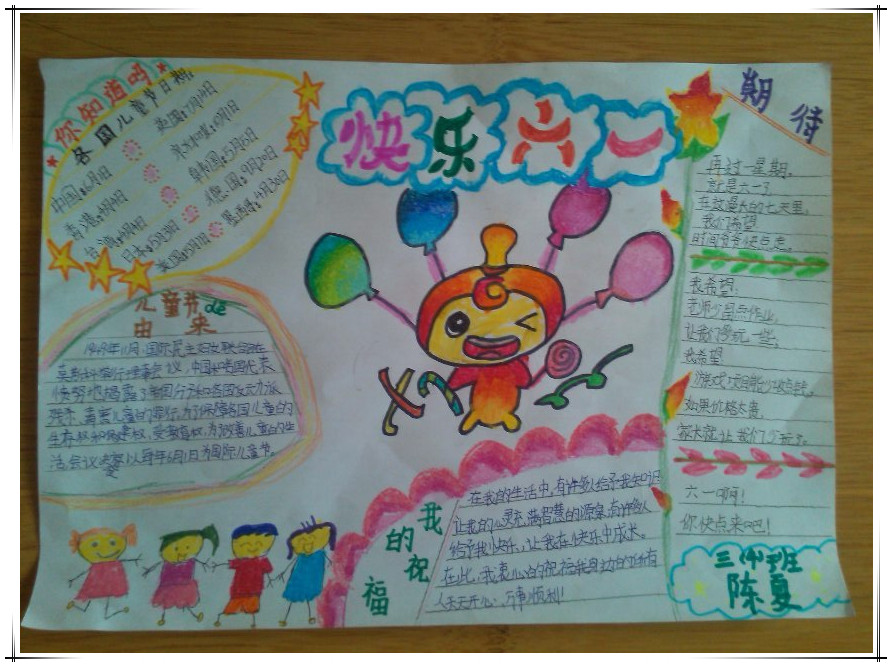 你知道吗
各国儿童节日期:
中国:6月1日
英国:7月14日
香港:4月4日
台湾:4月4日
韩国:5月5日
日本:5月5日
德国:9月20日
墨西哥:4月30日
快乐六一
儿童节de
由来
1949年11月,国际民主妇女联合会在
莫斯科举行理事会议,中国和各国代表
愤努地揭露了帝国分子和各国反动派
残杀、毒害儿童的罪行,为了保障各国儿童的
生存权和保健权,受教育权,为改善儿童的生
活,会议决定以每年6月1日为国际儿童节。
我的祝福
在我的生活中,有许多人给予我知识
让我的心灵充满智慧的源泉,有许多人
给予我快乐,让我在快乐中成长。
在此,我衷心的祝福我身边的所有
人天天开心、万事顺利!
期待
再过一星期。
就是六一了,
在这漫长的七天里,
我们希望
时间爷爷快点走。
我希望,
老师少留点作业,
让我们多玩一些,
我希望
游戏项目能少收点钱。
如果价格太贵,
家长就让我们少玩了。
六一啊!
你快点来吧!
班
陈夏